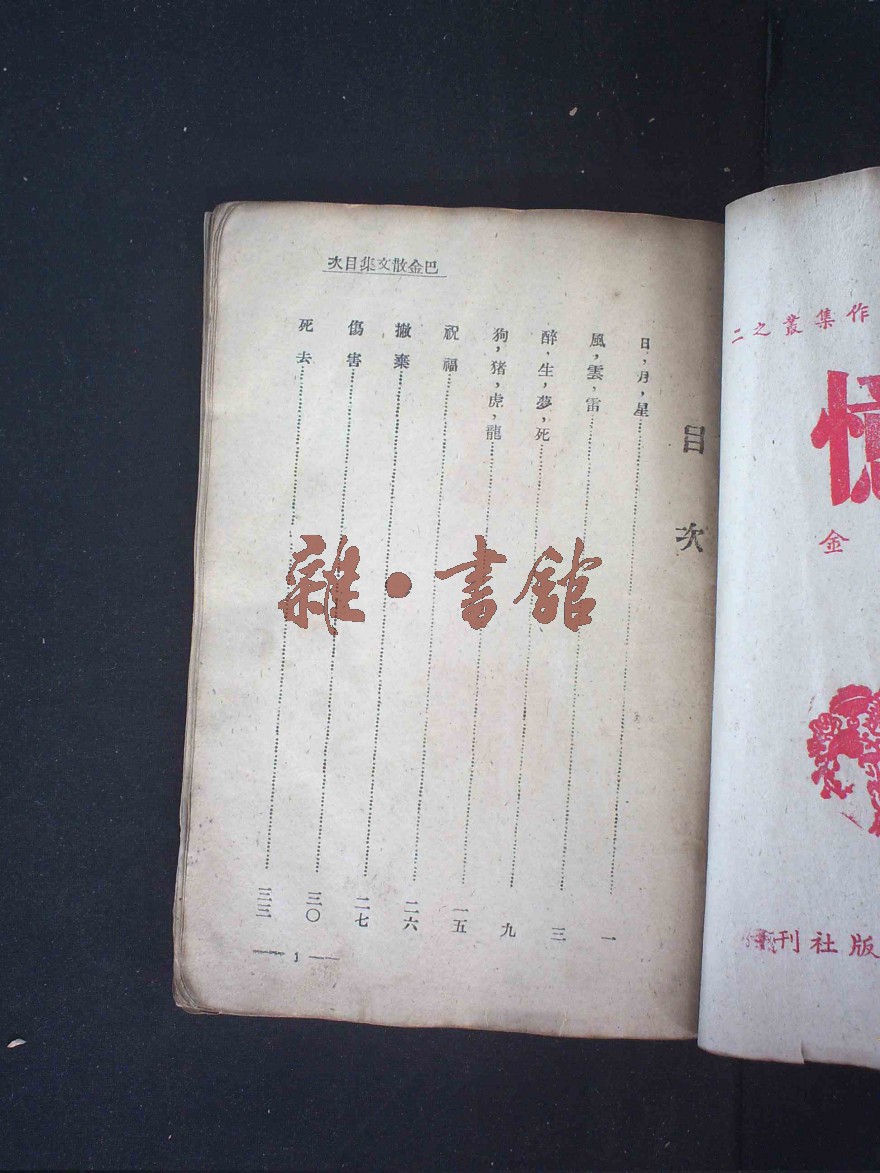 巴金散文集目次
目次
日，月，星……一
風，雲，雷……三
醉，生，夢，死……九
狗，猪，虎，龍……一五
祝福……二六
撇棄……二七
傷害……三〇
死去……三三
— 1 —
作集叢之二
憶
金
版社刊
雜·書館